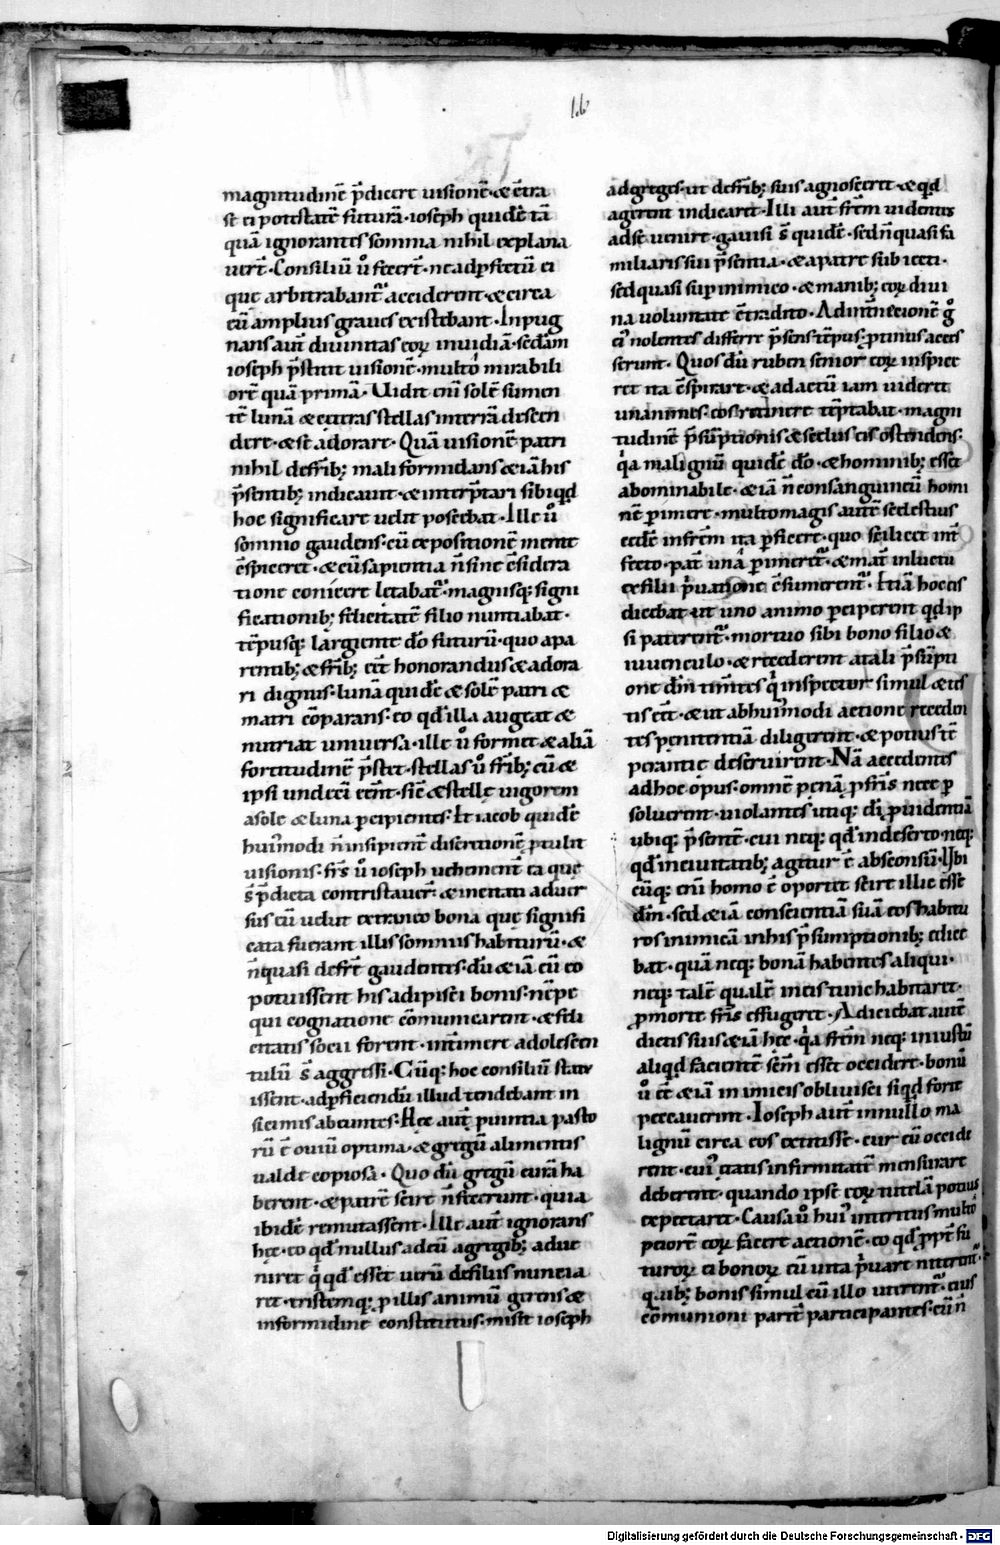 16
magnitudinē p̄dicere visionē·& c̄tra
sē ei potestatē futurā·ioseph quidē tā
quā ignorantes somnia nihil explana
vert̄·Consiliū ů fecert̄·ne ad p̱fectū ei
quę arbitrabant᷑ acciderent·& circa
cū amplius graves existebant·Inpug
nans aut̄ divinitas eoꝝ invidiā·sc̄dam
ioseph p̄stitit visionē·multo mirabili
orē quā primā·Vidit eni solē sumen
tē lunā & cęteras stellas in terrā descen
dere·& sē adorare·Quā visionē patri
nihil de frīb; mali formidans & iā his
p̄sentib; indicavit·& interp̄tari sibi qd̄
hoc significare velit poscebat·Ille ů
somnio gaudens·cū expositionē mente
c̄spiceret·& cū sapientia ń sine c̄sidera
tione conicere lętabat᷑·magnisq; signi
ficationib; felicitatē filio nuntiabat·
tēpusq; largiente dō futurū·quo a pa
rentib; & frīb; eēt honorandus & adora
ri dignus·lunā quidē & solē patri &
matri cōparans·eo qd̄ illa augeat &
nutriat universa·ille ů formet & aliā
fortitudinē p̄stet·stellas ů frīb; cū &
ipsi undeci eent̄·sic̄ & stellę vigorem
a sole & luna percipientes·Et iacob quidē
huiꝰmodi ń insipient̄ discretionē ptulit
visionis·frs̄ ů ioseph vehement̄ ea quę
s̄ p̄dicta contristaver̄·& incitati adver
sus eū velut extraneo bona quę signifi
cata fuerant illis somniis habiturū·&
ń quasi de frē gaudentes·dū & iā cū eo
potuissent his adipisci bonis·nēpe
qui cognatione cōmunicarent·& feli
citatis socii forent·int̄imere adolescen
tulū s̄ aggressi·Cūq; hoc consiliū statu
issent·ad p̱ficiendū illud tendebant in
sicimis abeuntes·Hęc aut̄ pvintia pasto
rū ē oviū optima·& gregū alimentis
valde copiosa·Quo dū gregū curā ha
berent·& patrē scire ń fecerunt·quia
ibidē remutassent·Ille aut̄ ignorans
hęc·eo qd̄ nullus ad eū a gregib; adve
niret q́ qd̄ esset verū de filiis nuncia
ret·tristemq; p illis animū gerens &
in formidine constitutus·misit ioseph
ad greges·ut de frīb; suis agnosceret·& qd̄
agerent indicaret·Illi aut̄ frēm videntes
ad sē venire·gavisi s̄ quidē·sed ń quasi fa
miliaris sui p̄sentia·& a patre sub iecti·
sed quasi sup̱ inimico·& manib; eoꝝ divi
na voluntate c̄tradito·Ad intm̄ecionē g̊
eiꝰ nolentes differre p̄sens tēpus·ptinus acces
serunt·Quos dū ruben senior eoꝝ inspice
ret ita c̄spirare·& ad actū iam videret
unanimes·eos retinere tēptabat·magni
tudinē p̄sūptionis & scelus eis ostendens·
q́a malignū quidē dō·& hominib; esset
abominabile·& iā ń consanguineū homi
nē p̱imere·multo magis autē scelestius
eēdē in frēm ita p̱ficere·quo scilicet int̄
fecto·pat̄ unā p̱imeret᷑·& mat̄ in luctu
ex filii p̄vatione c̄sumerent᷑·Etiā hoc eis
dicebat ut uno animo p̱ciperent qd̄ ip
si paterent᷑·mortuo sibi bono filio &
iuvenculo·& recederent a tali p̄sūpti
one dm̄ timentes q́ inspector simul & tes
tis eēt·& ut ab huiꝰmodi actione receden
tes pęnitentiā diligerent·& potius tē
perantię deservirent·Nā accedentes
ad hoc opus·omnē pęnā p fris̄ nece p̱
solverent·violantes utiq; dī pvidentiā
ubiq; p̄sentē·cui neq; qd̄ in deserto·neq;
qd̄ in civitatib; agitur ē absconsū·Ubi
cūq; eni homo ē oportet scire illic esse
dm̄·sed & iā conscientiā suā eos habitu
ros inimicā in his p̄sumptionib; edice
bat·quā neq; bonā habentes aliqui·
neq; talē qualē in eis tunc habitaret·
p morte fris̄ effugeret·Adiciebat autē
dictis suis & iā hęc·q́a frēm neq; iniustū
aliqd̄ facientē sem̄ esset occidere·bonū
ů eēt & iā inimicis oblivisci siqd̄ forte
peccaverint·Ioseph aut̄ in nullo ma
lignū circa eos extitisse·cur eū occide
rent·cuiꝰ ętatis infirmitatē mensurare
deberent·quando ipse eoꝝ tutelā potius
expectaret·Causa ů huiꝰ interitus multo
peiorē eoꝝ facere actionē·eo qd̄ ppt̄ fu
turoꝝ ei bonoꝝ eū vita p̄vare niterent᷑·
q·ib; bonis simul cū illo uterent᷑·eius
cōmunioni parit̄ participantes·cū ń
Digitalisierung gefördert durch die Deutsche Forschungsgemeinschaft - DFG